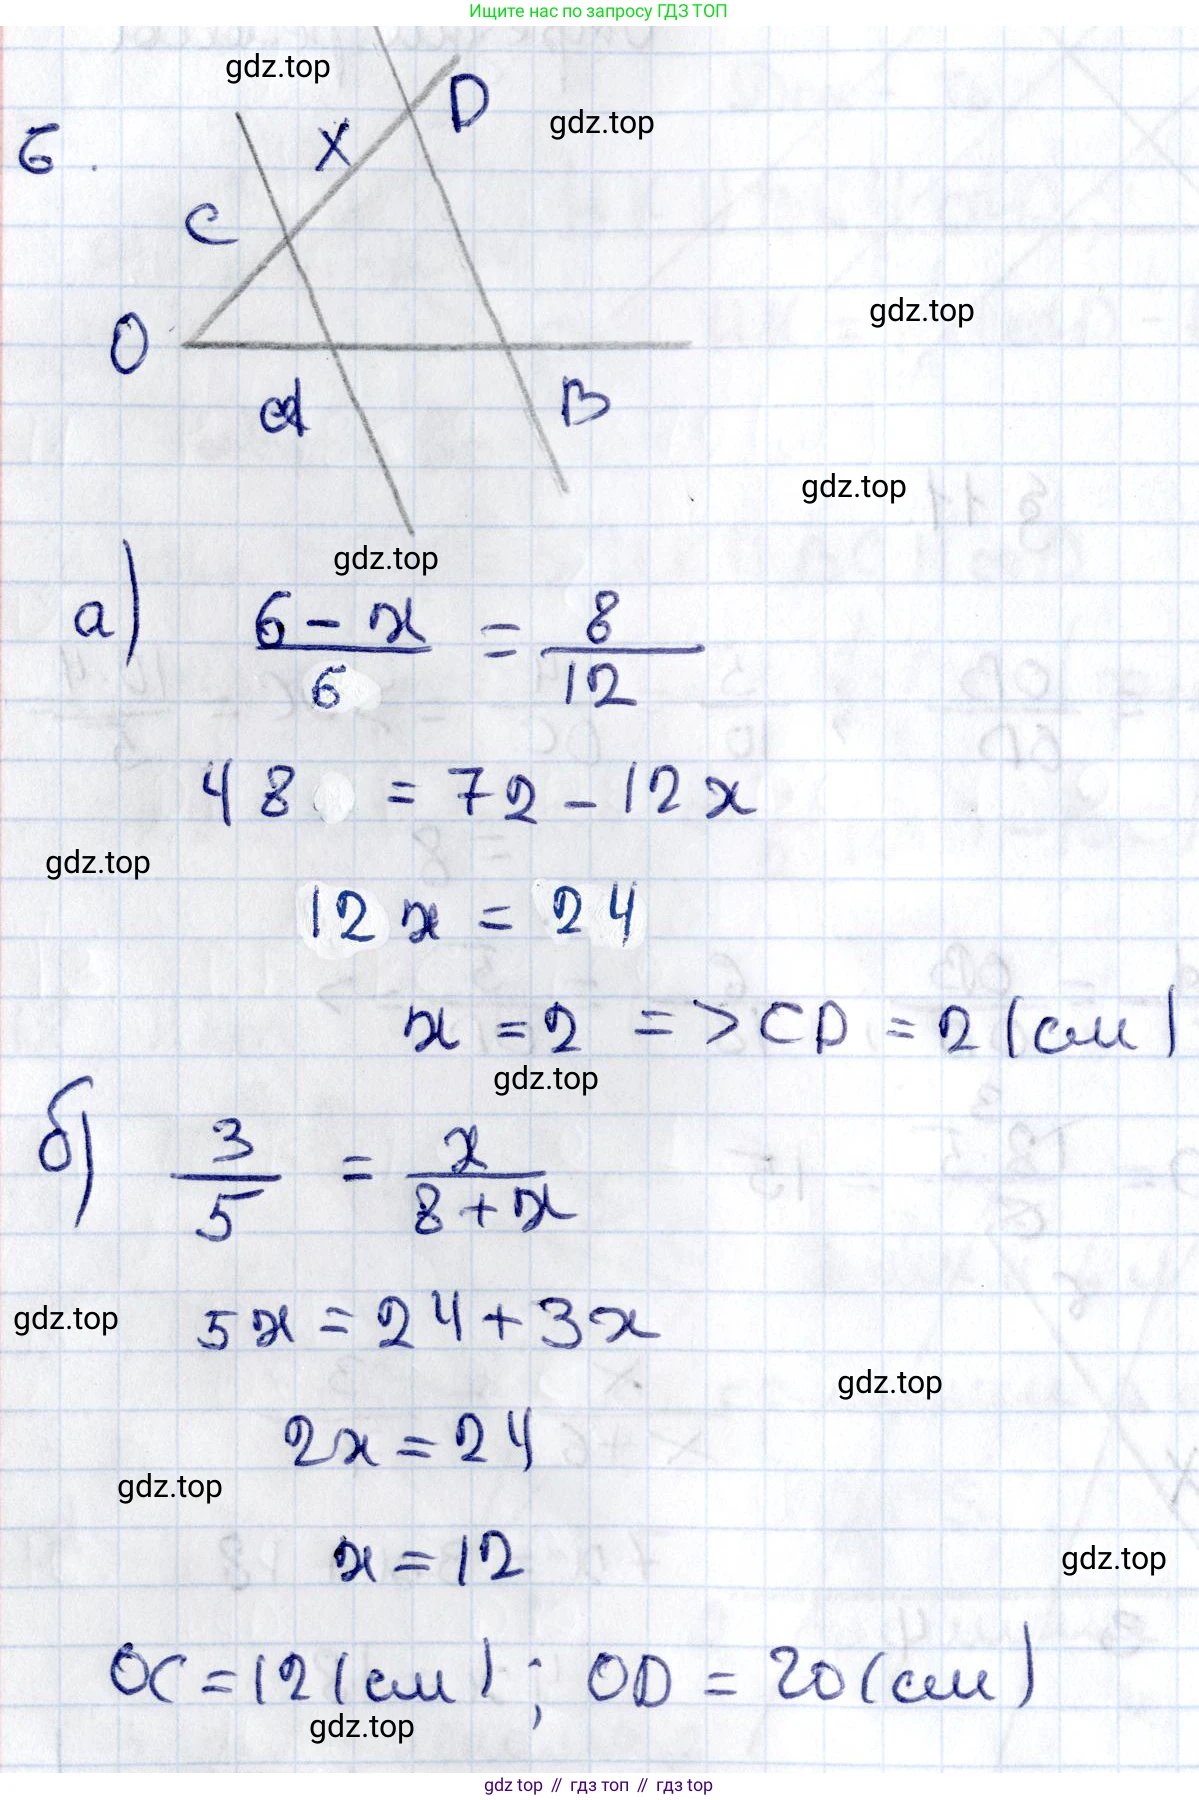 Ищите нас по запросу ГДЗ ТОП
gdz.top
D
gdz.top
X
6.
C
gdz.top
O
A
B
gdz.top
gdz.top
а) (6 - x)/6 = 8/12
48 = 72 - 12x
gdz.top
12x = 24
x = 2 => CD = 2 (см)
gdz.top
б) 3/5 = x/(8 + x)
5x = 24 + 3x
gdz.top
gdz.top
2x = 24
gdz.top
x = 12
gdz.top
OC = 12 (см); OD = 20 (см)
gdz.top
gdz top // гдз топ // гдз top